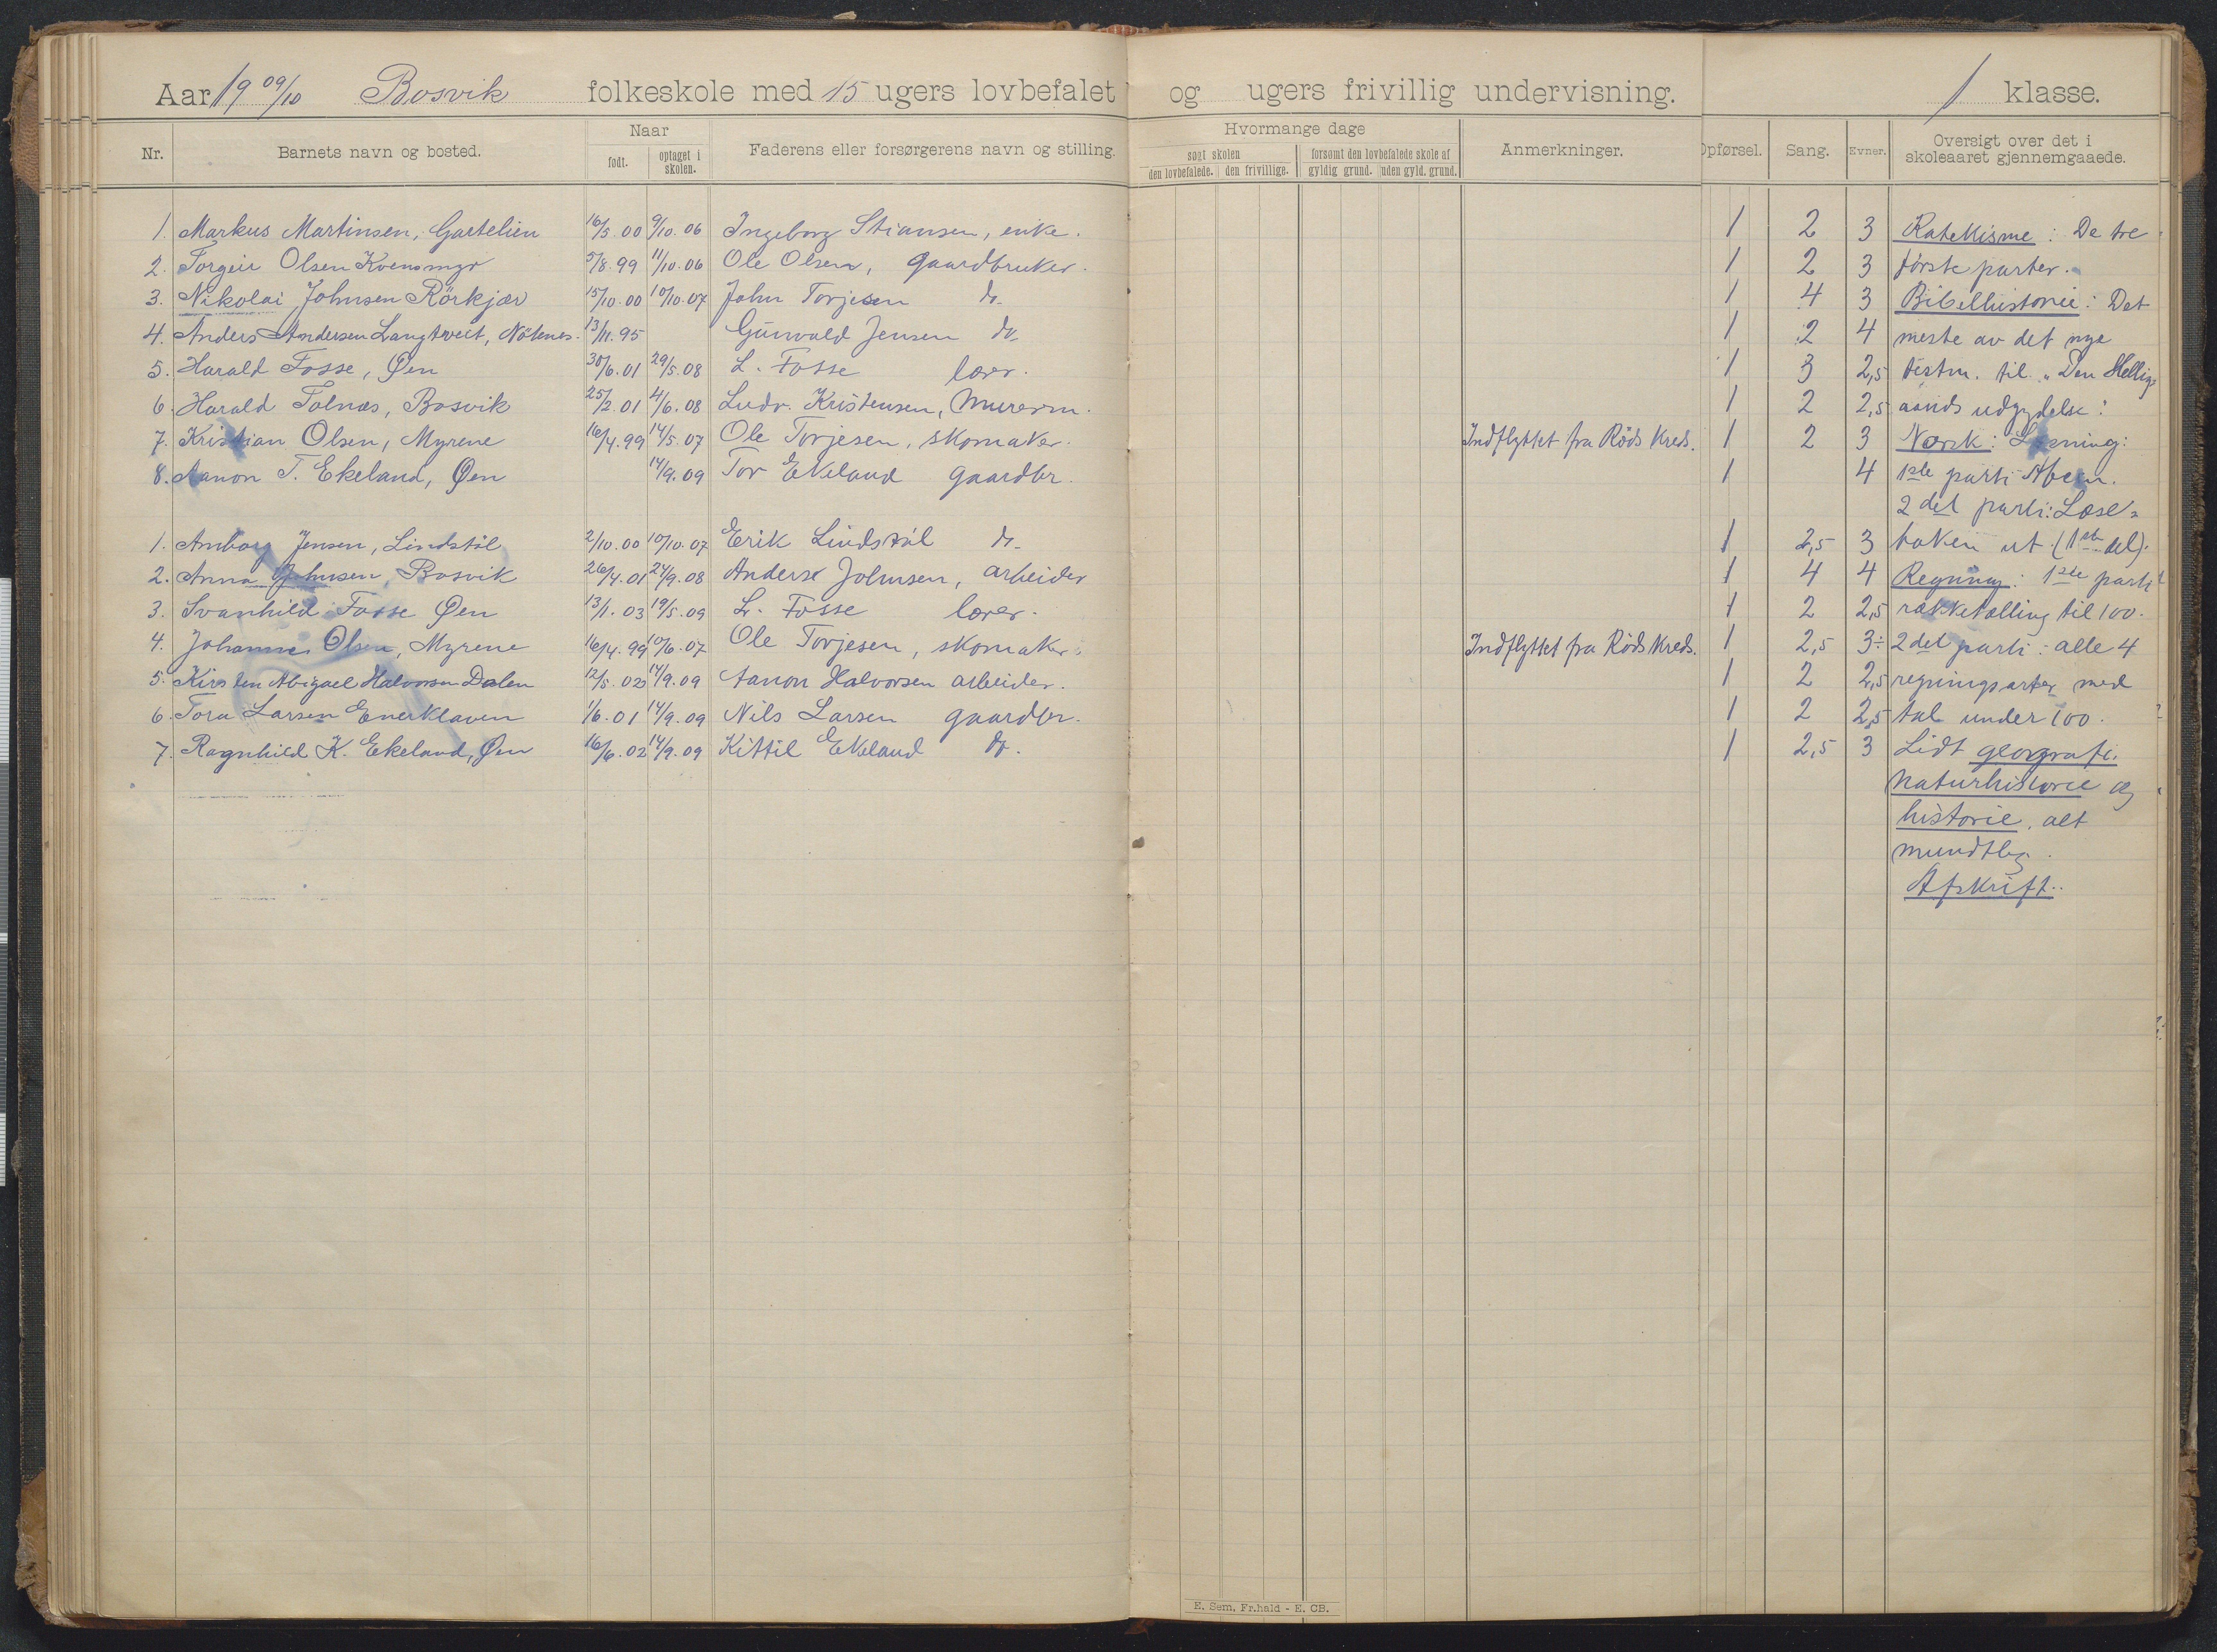 Aar 1909/10 Bosvik folkeskole med 15 ugers lovbefalet og ugers frivillig undervisning. 1 klasse.
Nr. Barnets navn og bosted. Naar født. optaget i skolen. Faderens eller forsørgerens navn og stilling. Hvormange dage søgt skolen den lovbefalede. den frivillige. forsømt den lovbefalede skole af gyldig grund. uden gyld. grund. Anmerkninger. Opførsel. Sang. Evner. Oversigt over det i skoleaaret gjennemgaaede.
1. Markus Martinsen, 16/5.00 9/10.06 Ingeborg Stiansen, enke. 1 2 3 Katekisme: De tre
2. Torgeir Olsen Kvensmyr 5/8.99 11/10.06 Ole Olsen, Gaardbruker. 1 2 3 første parter.
3. Nikolai Johnsen Rörkjær 15/10.00 10/10.07 John Torjesen do. 1 4 3 Bibelhistorie: Det
4. Anders Andersen Langtveit, 13/11.95 Gunvald Jensen do. 1 2 4 meste av det nye
5. Harald Fosse, Øen 30/6.01 29/5.08 L. Fosse lærer. 1 3 2,5 testm. til "Den Hellig=
6. Harald Tolnæs, Bosvik 25/2.01 4/6.08 Ludv. Kristensen, Murerm. 1 2 2,5 aands udgydelse!
7. Kristian Olsen, Myrene 16/4.99 14/5.07 Ole Torjesen, skomaker. Indflyttet fra Röds kreds. 1 2 3 Norsk: Læsning:
8. Aanon T. Ekeland, Øen 14/9.09 Tor Ekeland gaardbr. 1 4 1ste parti Abcen.
2det parti: Læse=
1. Amborg Jensen, Lindstöl 2/10.00 10/10.07 Erik Lindstöl do. 1 2,5 3 boken ut (1ste del).
2. Anna Johnsen, Bosvik 26/4.01 24/9.08 Anders Johnsen, arbeider 1 4 4 Regning: 1ste parti
3. Svanhild Fosse Øen 13/1.03 19/5.09 L. Fosse lærer. 1 2 2,5 rækketælling til 100.
4. Johanne Olsen, Myrene 16/4.99 10/6.07 Ole Torjesen, skomaker. Indflyttet fra Röds kreds. 1 2,5 3÷ 2det parti: alle 4
5. Kirsten Abigael Halvorsen Dalen 12/5.02 14/9.09 Aanon Halvorsen arbeider. 1 2 2,5 regningsarter med
6. Tora Larsen Enerklaven 1/6.01 14/9.09 Nils Larsen gaardbr. 1 2 2,5 tal under 100.
7. Ragnhild K. Ekeland, Øen 16/6.02 14/9.09 Kittil Ekeland do. 1 2,5 3 Lidt geografi,
naturhistorie og
historie, alt
mundtlig.
Afskrift.
E. Sem, Fr.hald - E. CB.